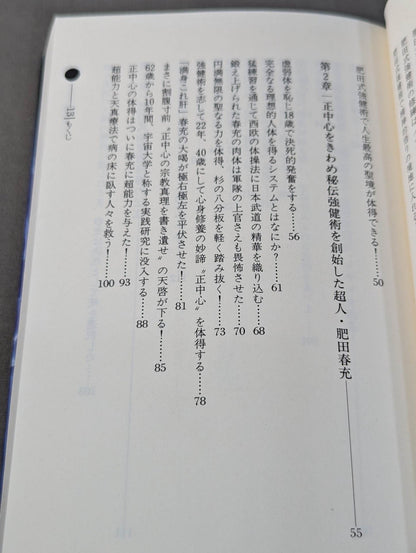 肥田式強健術で人生最高の聖境が体得できる!……50
第2章―正中心をきわめ秘伝強健術を創始した超人・肥田春充――55
虚弱体を恥じ18歳で決死的発奮をする……56
完全なる理想的人体を得るシステムとはなにか?……61
猛練習を通じて西欧の体操法に日本武道の精華を織り込む……68
鍛え上げられた春充の肉体は軍隊の上官さえも畏怖させた……70
円満無限の聖なる力を体得、杉の八分板を軽く踏み抜く!……73
強健術を志して22年、40歳にして心身修養の妙諦〝正中心〟を体得する……78
「満身これ肝」春充の大喝が極右極左を平伏させた!……81
まさに割腹寸前〝正中心の宗教真理を書き遺せ〟の天啓が下る!……85
62歳から10年間、宇宙大学と称する実践研究に没入する……88
正中心の体得はついに春充に超能力を与えた!……93
超能力と天真療法で病の床に臥す人々を救う!……100
もくじ